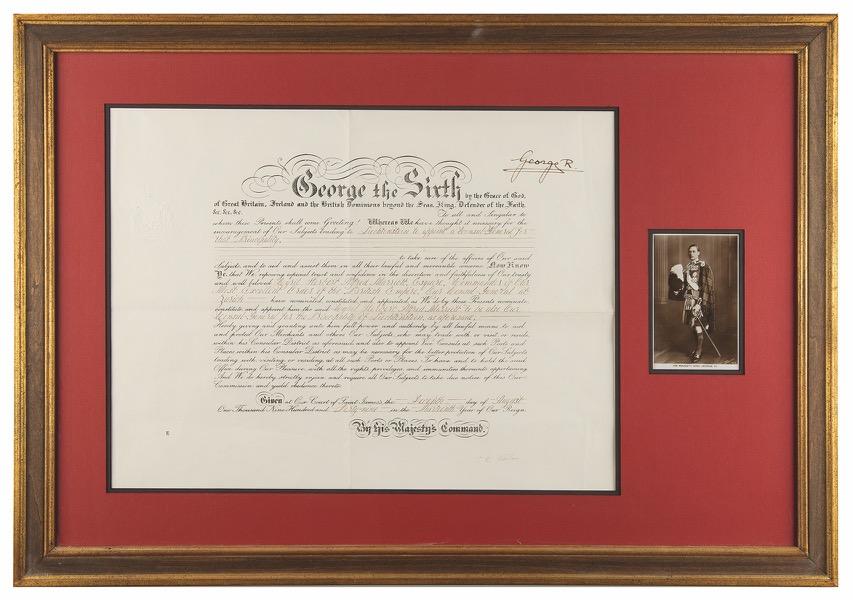 George R.
George the Sixth by the Grace of God,
of Great Britain, Ireland and the British Dominions beyond the Seas, King, Defender of the Faith,
&c. &c. &c. To all and Singular to
whom these Presents shall come Greeting! Whereas We have thought it necessary for the
encouragement of Our Subjects trading to Liechtenstein to appoint a Consul General for
that Principality,
to take care of the affairs of Our said
Subjects, and to aid and assist them in all their lawful and mercantile concerns Now Know
Ye, that We, reposing especial trust and confidence in the discretion and faithfulness of Our trusty
and well beloved Herbert Alfred Marriott, Esquire, Commander of Our
Most Excellent Order of the British Empire, Our Consul General at
Zurich have nominated, constituted, and appointed, as We do by these Presents nominate,
constitute and appoint him the said Herbert Alfred Marriott to be also Our
Consul General for the Principality of Liechtenstein, as aforesaid,
Hereby giving and granting unto him full power and authority, by all lawful means to aid
and protect Our Merchants and others Our Subjects, who may trade with or visit or reside
within his Consular District as aforesaid; and also to appoint Vice Consuls at such Ports and
Places within his Consular District as may be necessary for the better protection of Our Subjects
trading with, visiting, or residing, at all such Ports or Places. To have and to hold the said
Office during Our Pleasure, with all the rights, privileges, and immunities thereunto appertaining.
And We do hereby strictly enjoin and require all Our Subjects to take due notice of this Our
Commission and yield obedience thereto.
Given at Our Court of Saint James's, the day of August
One Thousand Nine Hundred and Forty-nine in the Thirteenth Year of Our Reign.
By His Majesty's Command.
HIS MAJESTY KING GEORGE VI